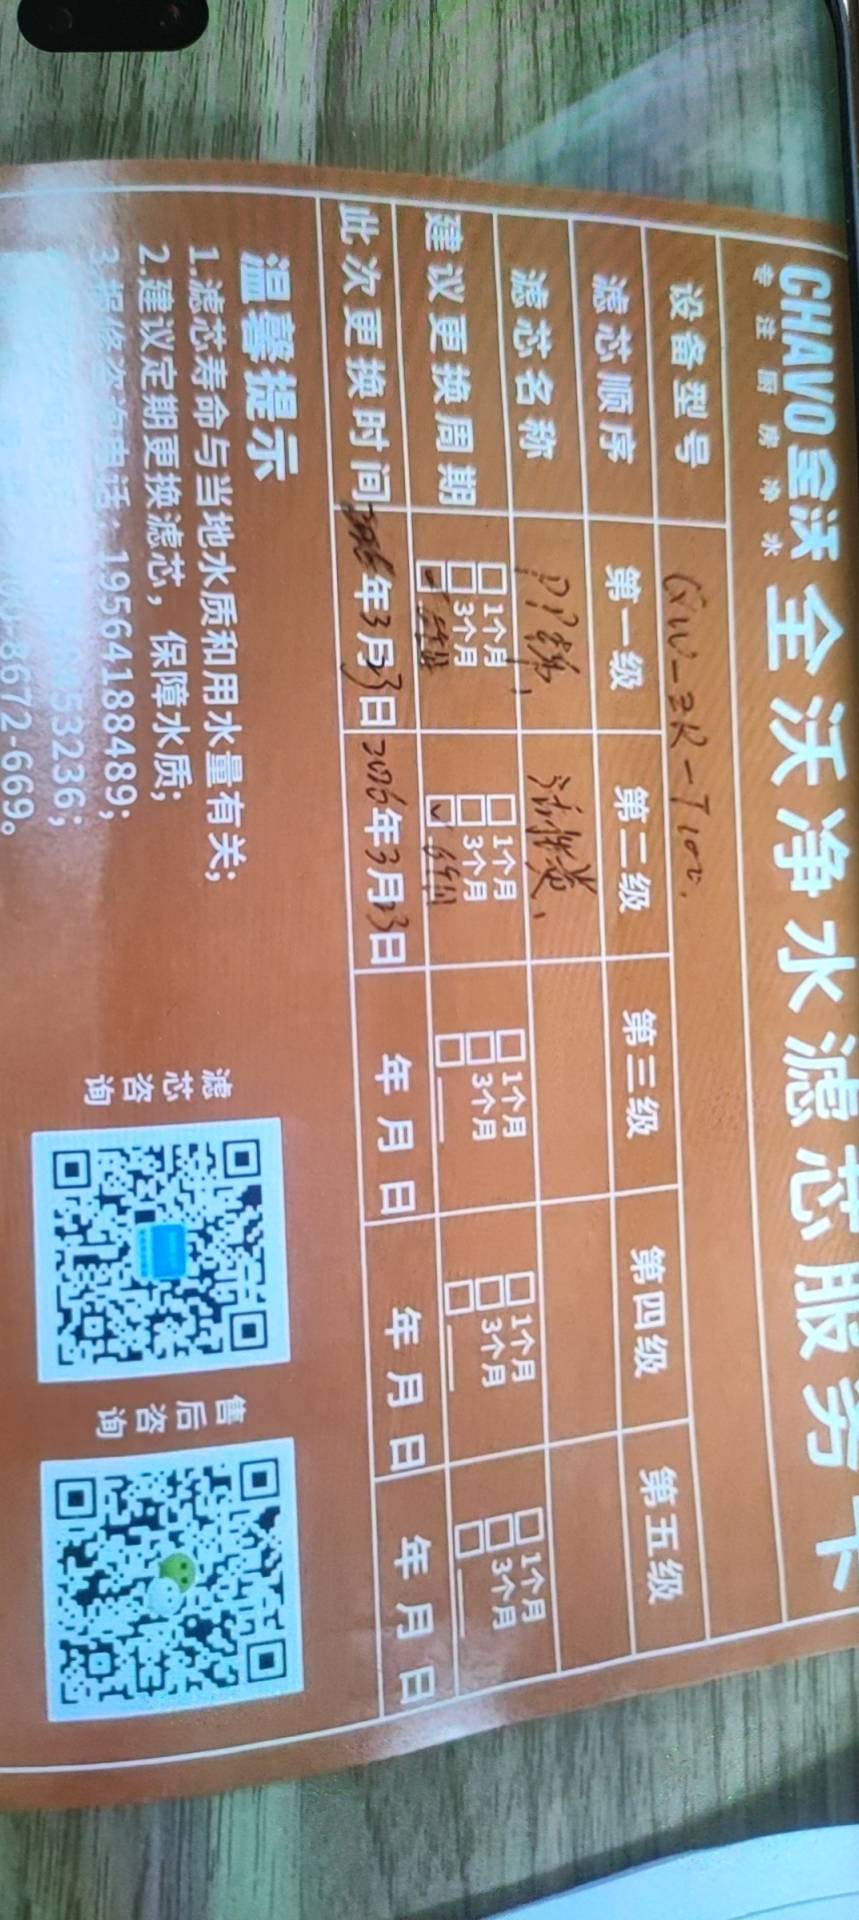 CHAVO全沃 全沃净水滤芯服务卡
专注厨房净水
设备型号 QW-2R-T100.
滤芯顺序 第一级 第二级 第三级 第四级 第五级
滤芯名称 PP棉、 活性炭、
建议更换周期 □1个月 □1个月 □1个月 □1个月 □1个月
□3个月 □3个月 □3个月 □3个月 □3个月
此次更换时间 年3月23日 2026年3月23日 年 月 日 年 月 日 年 月 日
温馨提示
1.滤芯寿命与当地水质和用水量有关;
2.建议定期更换滤芯，保障水质;
电话：19564188489;
53236;
8672-669。
滤芯咨询
售后咨询